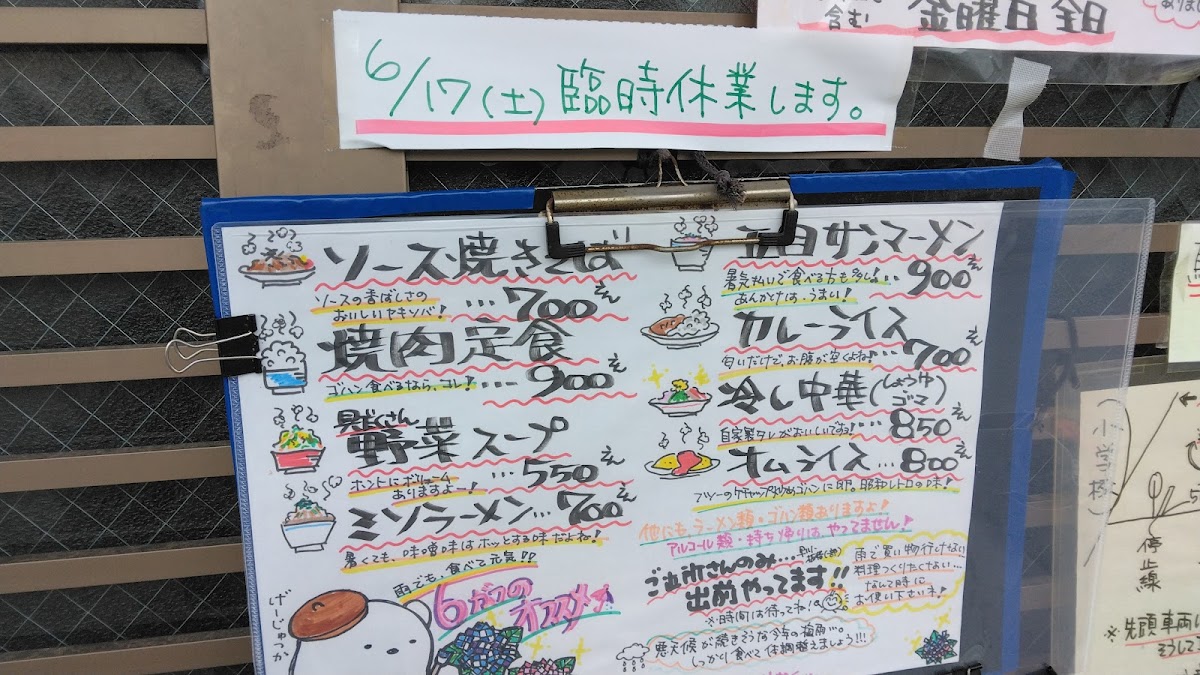 6/17(土)臨時休業します。
含む 金曜日全日
ソース焼きそば
ソースの香ばしさの
おいしいヤキソバ!
…700えん
焼肉定食
ゴハン食べるなら、コレ!
…900えん
具だくさん
野菜スープ
…550えん
ホントにボリューム
ありますよー!
ミソラーメン…700えん
暑くても、味噌味はホッとする味だよね!
サンマーメン
暑気払いで食べる方も多し!…900えん
あんかけは、うまい!
カレーライス
匂いだけで、お腹が空くよね!…700えん
冷し中華(しょうゆ ゴマ)
自家製タレがおいしいですョ!…850えん
オムライス…800えん
フツーのケチャップ炒めゴハンに卵。昭和レトロの味!
他にも、ラーメン類・ゴハン類ありますよ!
アルコール類・持ち帰りは、やってません!
ご近所さんのみ…
出前やってます!!
※時間は待ってね!
雨で買い物行けない
料理つくりたくない…
なんて時に
お使い下さいネ!
雨でも、食べて元気!!
6がつの
オススメ
げーじゅつか
悪天候が続きそうな今年の梅雨…。
しっかり食べて体調整えましょう!!!
(小学校)
停止線
※先頭車両